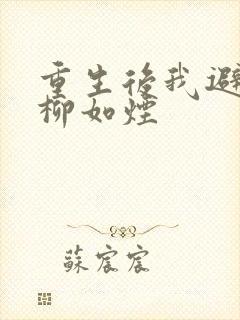 重生後我避
柳如煙
蘇宸宸